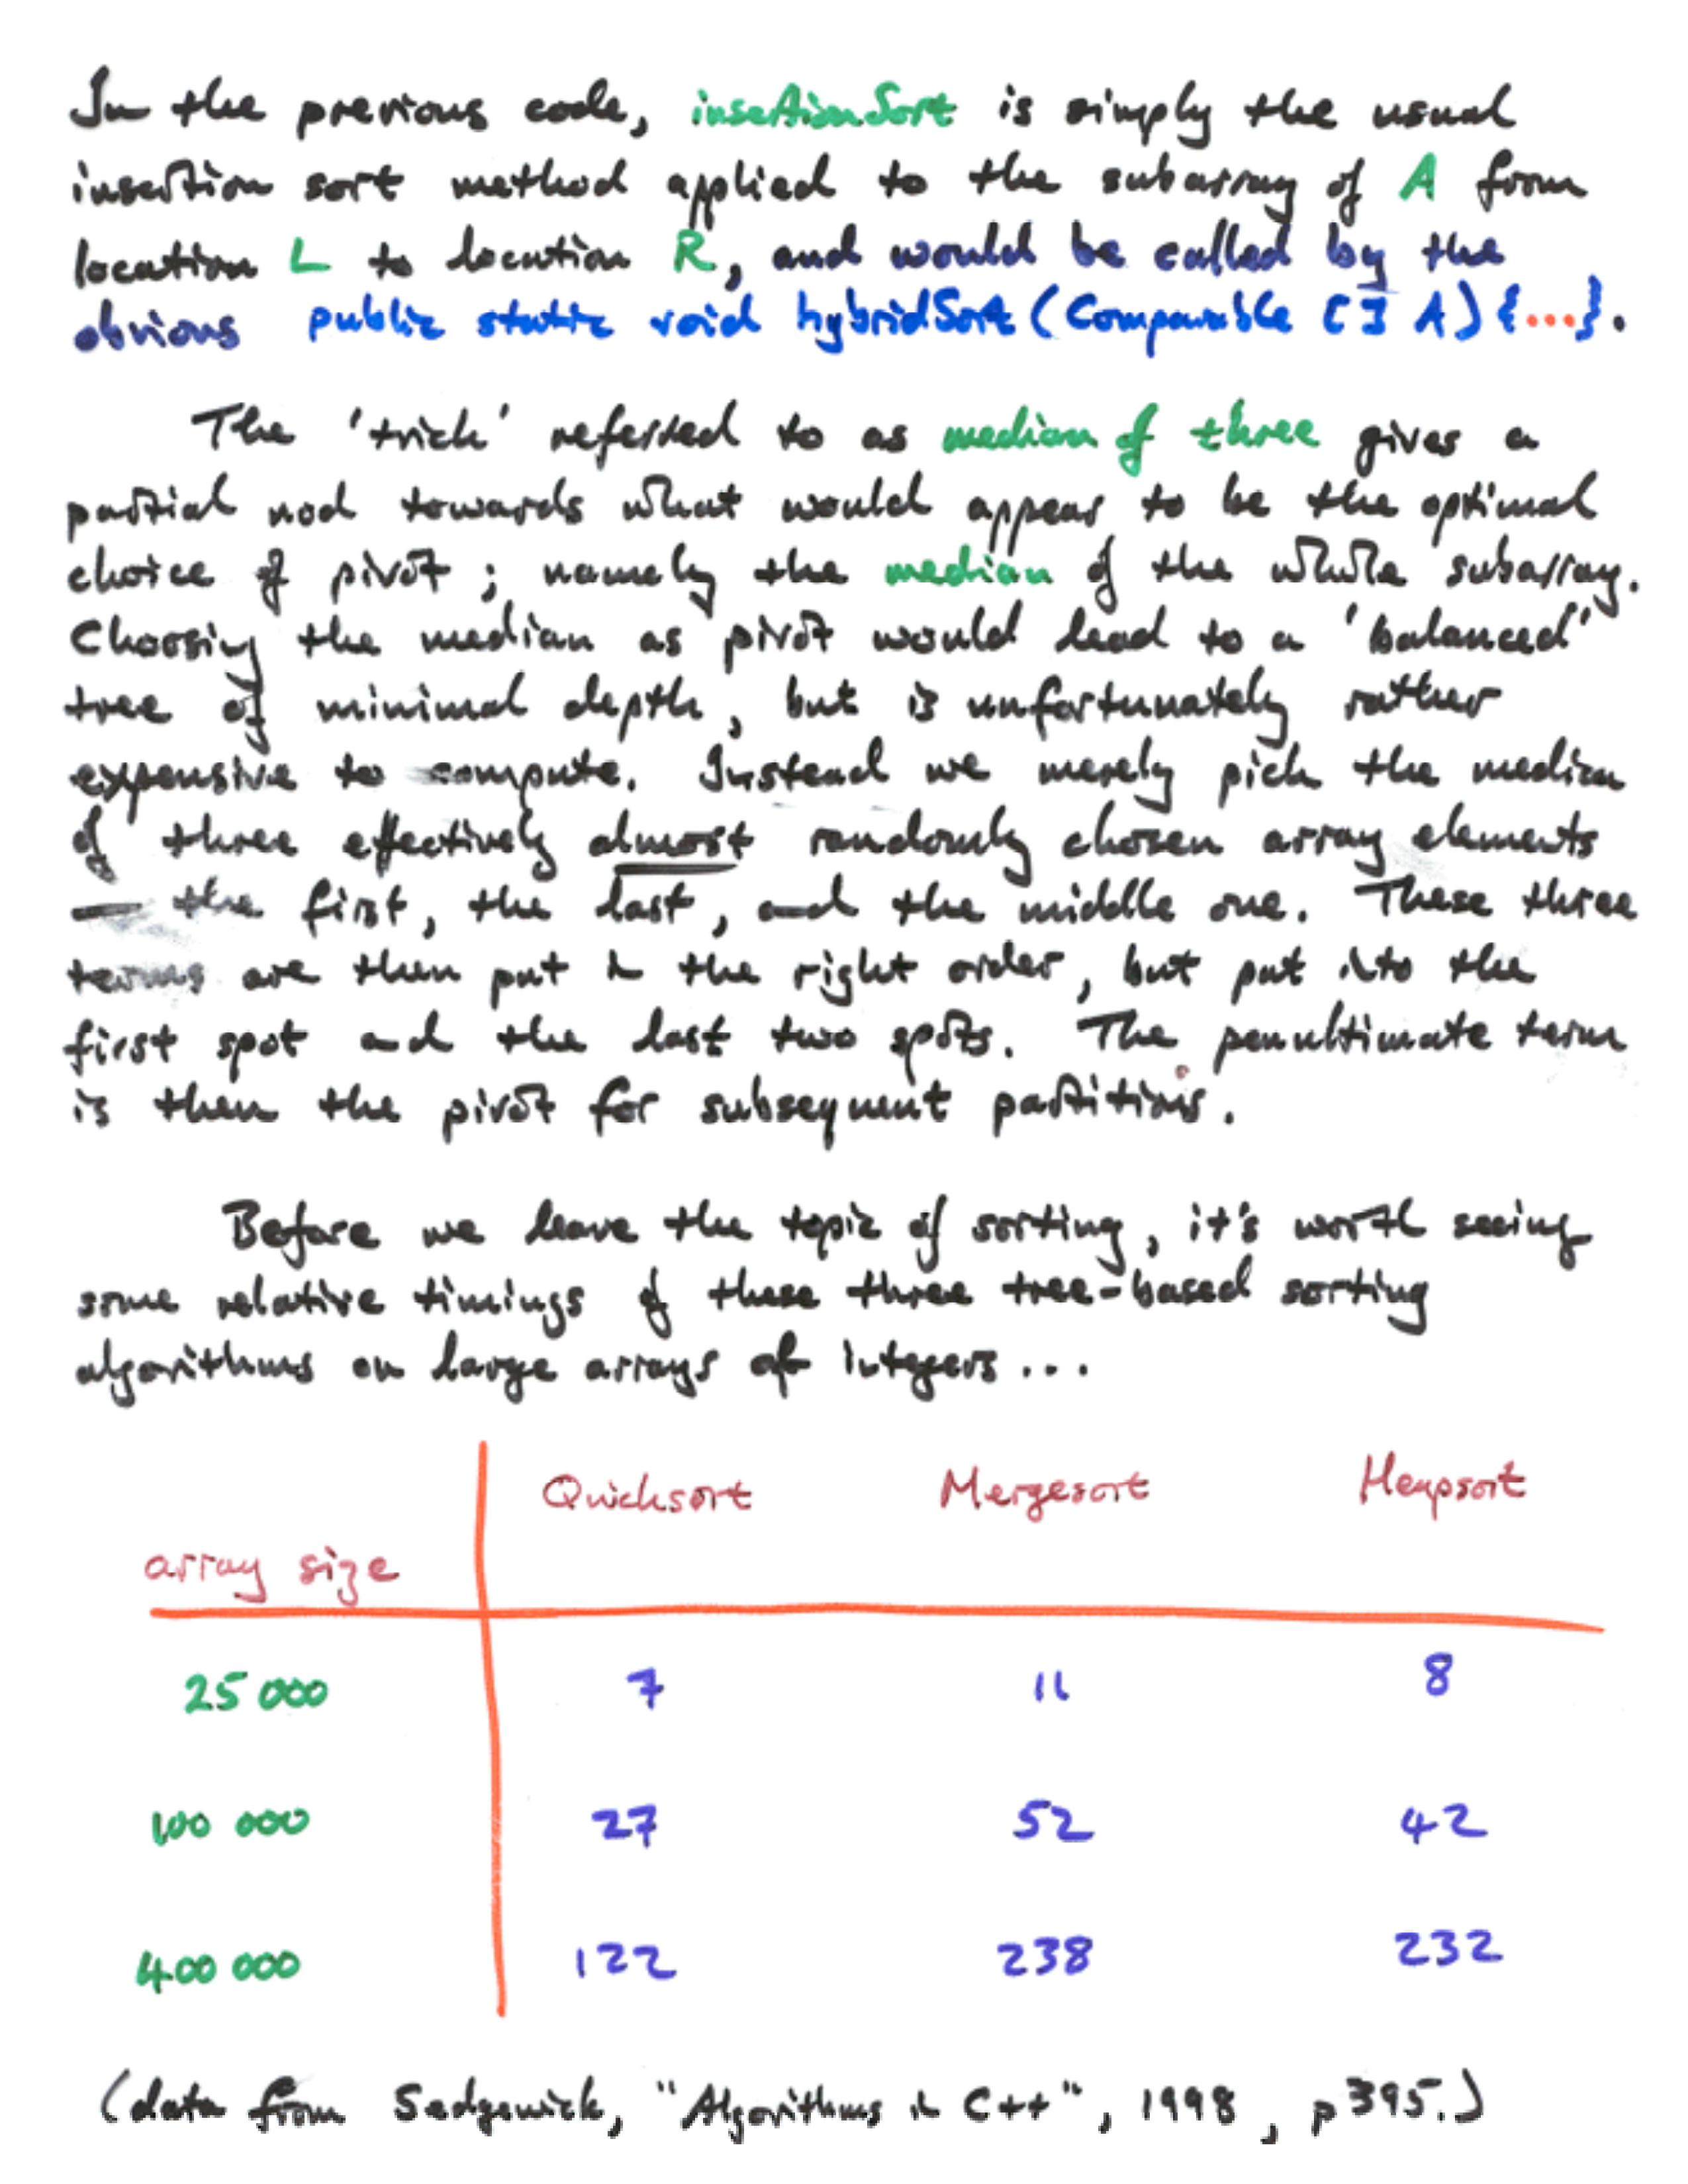 In the previous code, insertionSort is simply the usual
insertion sort method applied to the subarray of A from
location L to location R, and would be called by the
obvious public static void hybridSort (Comparable [] A) {...}.
The 'trick' referred to as median of three gives a
partial nod towards what would appear to be the optimal
choice of pivot ; namely the median of the whole subarray.
Choosing the median as pivot would lead to a 'balanced'
tree of minimal depth, but is unfortunately rather
expensive to compute. Instead we merely pick the median
of three effectively almost randomly chosen array elements
— the first, the last, and the middle one. These three
terms are then put in the right order, but put into the
first spot and the last two spots. The penultimate term
is then the pivot for subsequent partitions.
Before we leave the topic of sorting, it's worth seeing
some relative timings of these three tree-based sorting
algorithms on large arrays of integers ...
Quicksort Mergesort Heapsort
array size
25 000 7 11 8
100 000 27 52 42
400 000 122 238 232
(data from Sedgewick, "Algorithms in C++", 1998, p 395.)